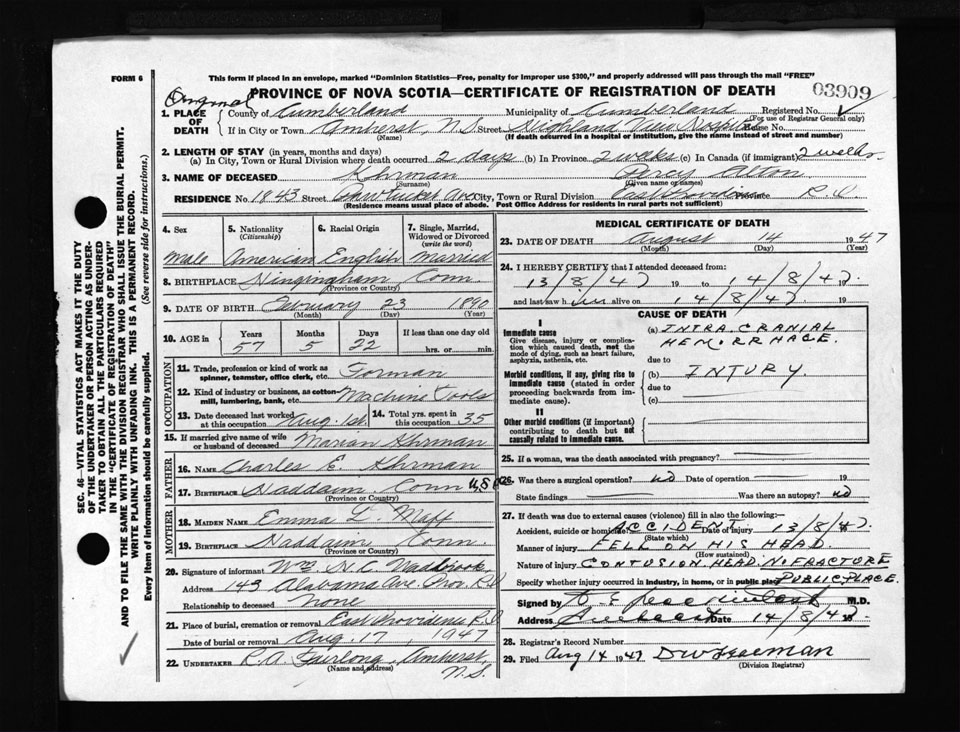 FORM 6
This form if placed in an envelope, marked "Dominion Statistics—Free, penalty for improper use $300," and properly addressed will pass through the mail "FREE"
Original
PROVINCE OF NOVA SCOTIA—CERTIFICATE OF REGISTRATION OF DEATH
03909
1. PLACE OF DEATH
County of Cumberland Municipality of Cumberland Registered No.
(For use of Registrar General only)
If in City or Town Amherst, N.S. Street Highland View Hospital House No.
(Name) (If death occurred in a hospital or institution, give the name instead of street and number)
2. LENGTH OF STAY (in years, months and days)
(a) In City, Town or Rural Division where death occurred 2 days (b) In Province 2 weeks (c) In Canada (if immigrant) 2 weeks.
3. NAME OF DECEASED Ehrman Percy Alton
(Surname) (Given name or names)
RESIDENCE No. 1843 Street Pawtucket Ave. City, Town or Rural Division East Providence Province R.I.
(Residence means usual place of abode. Post Office Address for residents in rural parts not sufficient)
4. Sex
5. Nationality (Citizenship)
6. Racial Origin
7. Single, Married, Widowed or Divorced (write the word)
Male American English Married
8. BIRTHPLACE Conn.
(Province or Country)
9. DATE OF BIRTH February 23 1890
(Month) (Day) (Year)
10. AGE in Years Months Days If less than one day old
57 5 22 hrs. or min.
OCCUPATION
11. Trade, profession or kind of work as spinner, teamster, office clerk, etc. Forman
12. Kind of industry or business, as cotton mill, lumbering, bank, etc. Machine Tools
13. Date deceased last worked at this occupation Aug. 1st.
14. Total yrs. spent in this occupation 35
15. If married give name of wife or husband of deceased Marian Ehrman
FATHER
16. NAME Charles E. Ehrman
17. BIRTHPLACE Haddam Conn U.S.A.
(Province or Country)
MOTHER
18. MAIDEN NAME Emma L.
19. BIRTHPLACE Haddam Conn.
(Province or Country)
20. Signature of informant Wm. H. C.
Address 143 Alabama Ave. Prov. R.I.
Relationship to deceased None
21. Place of burial, cremation or removal East Providence R.I.
Date of burial or removal Aug. 17, 1947
22. UNDERTAKER R.A. Amherst, N.S.
(Name and address)
MEDICAL CERTIFICATE OF DEATH
23. DATE OF DEATH August 14 1947
(Month) (Day) (Year)
24. I HEREBY CERTIFY that I attended deceased from:
13/8/47 19 to 14/8/47. 19
and last saw him alive on 14/8/47. 19
CAUSE OF DEATH
I
Immediate cause
Give disease, injury or complication which caused death, not the mode of dying, such as heart failure, asphyxia, asthenia, etc.
(a) INTRA.CRANIAL
HEMORRHAGE.
due to
Morbid conditions, if any, giving rise to immediate cause (stated in order proceeding backwards from immediate cause).
(b) INJURY.
due to
(c)
II
Other morbid conditions (if important) contributing to death but not causally related to immediate cause.
25. If a woman, was the death associated with pregnancy?
26. Was there a surgical operation? NO Date of operation 19
State findings Was there an autopsy? NO
27. If death was due to external causes (violence) fill in also the following:—
Accident, suicide or homicide ACCIDENT. Date of injury 13/8/47.
(State which)
Manner of injury FELL ON HIS HEAD.
(How sustained)
Nature of injury CONTUSION HEAD. NIFRACTURE
Specify whether injury occurred in industry, in home, or in public place PUBLIC PLACE.
Signed by M.D.
Address Date 14/8/47 19
28. Registrar's Record Number
29. Filed Aug 14 1947
(Division Registrar)
SEC. 46—VITAL STATISTICS ACT MAKES IT THE DUTY OF THE UNDERTAKER OR PERSON ACTING AS UNDERTAKER TO OBTAIN ALL THE PARTICULARS REQUIRED IN THE "CERTIFICATE OF REGISTRATION OF DEATH" AND TO FILE THE SAME WITH THE DIVISION REGISTRAR WHO SHALL ISSUE THE BURIAL PERMIT.
WRITE PLAINLY WITH UNFADING INK. THIS IS A PERMANENT RECORD.
Every item of information should be carefully supplied. (See reverse side for instructions.)